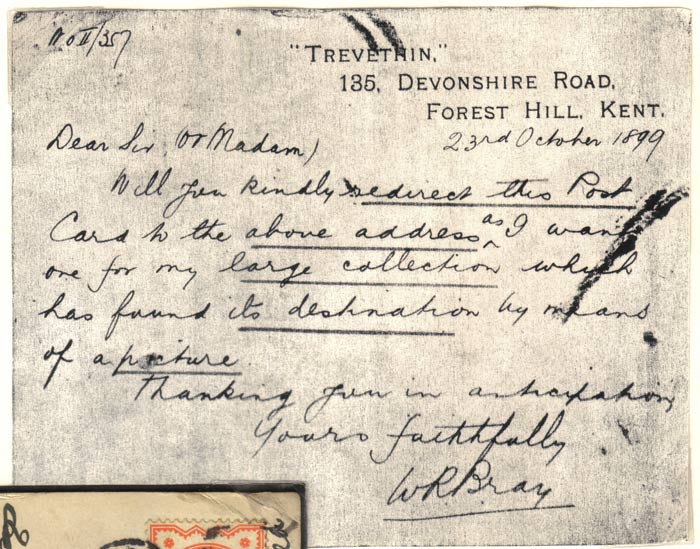 No II/357
"TREVETHIN,"
135, DEVONSHIRE ROAD,
FOREST HILL, KENT.
23rd October 1899
Dear Sir (or Madam)
Will you kindly redirect this Post
Card to the above address as I want
one for my large collection which
has found its destination by means
of a picture
Thanking you in anticipation,
Yours faithfully
WRBray